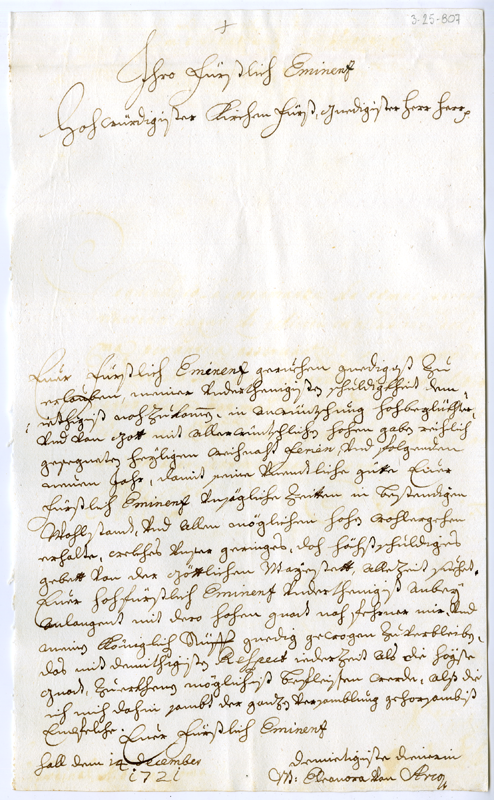 3-25-807
+
Ihro Fürstlich Eminenz
Hochwürdigister Kirchen Fürst, gnedigister Herr Herr
Euer Fürstlich Eminenz geruhen gnedigist zu
erlauben, meiner underthenigisten schuldigkeit dem,
iethigist nachzukomen, in anwintschung hochbeglückhter,
und von Gott mit allerwintschlichen hohen gaben reichlich
gesegneten heyligen weinacht Ferien, und folgenden
neuen Jahr, damit seine vnentliche güete Euer
Fürstlich Eminenz vnzögliche Zeitten in bestendigen
Wohlstand, und allen möglichen hohen wohlergehen
erhalte, welches vnser geringes, doch höchstschuldiges
gebett von der Göttlichen Mayestett alle Zeit
Euer hochfürstlich Eminenz underthenigist anbey
anlangent mit dero hohen gnad noch fehrner mir und
meinen Königlich Stüfft gnedig gewogen zu verbleiben,
das mit demithigisten Respect iederzeit als die högste
gnad, zuerkhenen möglichist befleissen werde, alss die
ich mich dahin sambt der ganzen versamblung gehorsambist
Empfelche. Euer Fürstlich Eminenz
Hall dem 14 December
1721
demietigiste dienerin
M: Eleonora von Arco